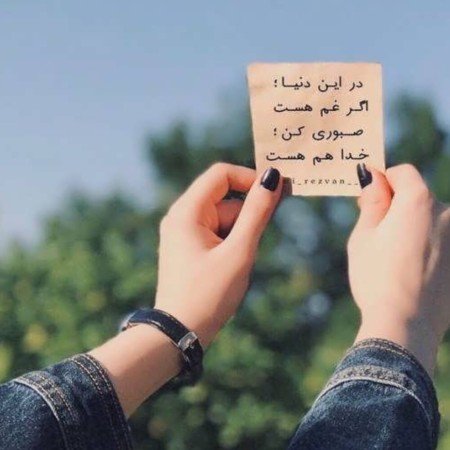 در این دنیا؛
اگر غم هست
صبوری کن؛
خدا هم هست
i_rezvan__